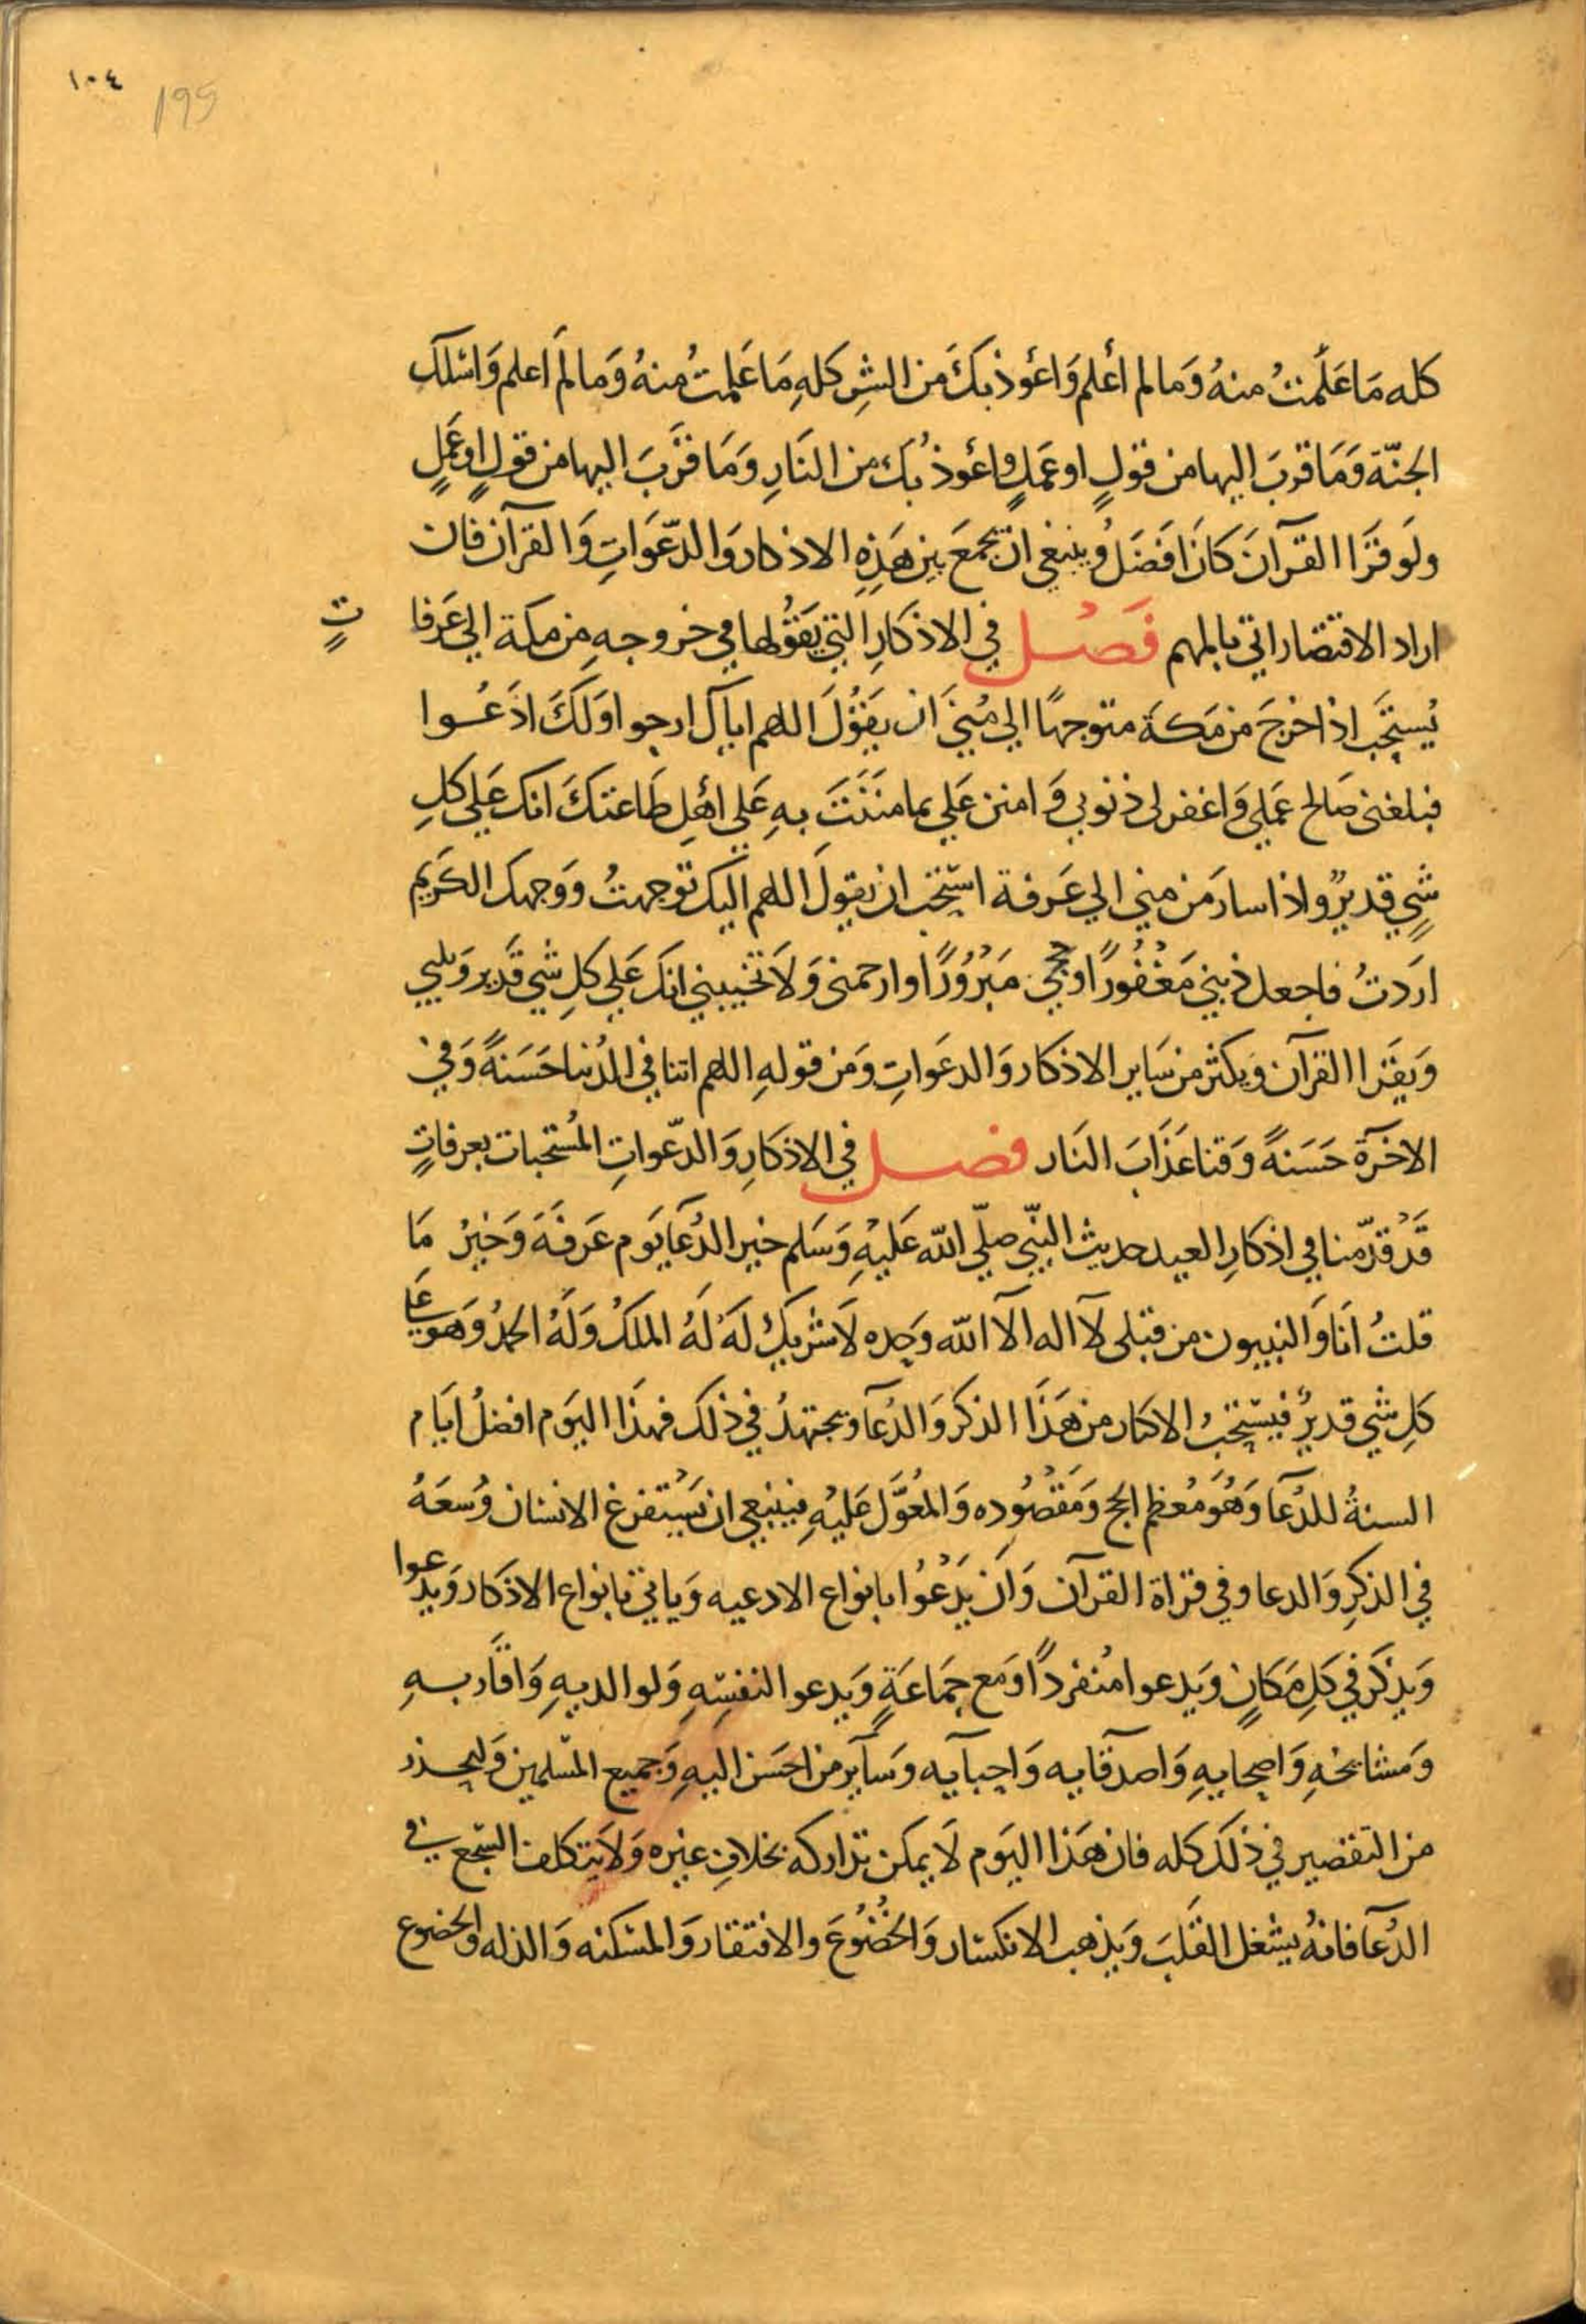 ١٠٤
195
كله مَا عَلَّمتُ منهُ وَمَا لم أعْلم وَاعُوذ بكَ مَن الشرِ كلهِ مَا عَلمتُ منهُ وَمَا لمَ اعلم وَاسْلك
الجنّة وَمَا قربَ اليها من قولٍ او عَملٍ واعُوذ بُكَ من النَارِ وَمَا قرَّبَ اليها من قولٍ اوعَملٍ
ولَو قرَا القرآنَ كانَ افضَلُ وينبغي ان يجمَعَ بين هَذِهِ الاذكار وَالدّعَوَاتِ وَالقرآن فان
اراد الاقتصار اتي بالمهم فَصْل في الاذكَارِ التي يَقوُلها في خروجهِ من مكة الي عَرَفاتٍ
يُستحَب اذا خرجَ من مَكةَ متوجهًا الي مُنيَ ان يقوُلَ اللهم اياك ارجوا وَلَكَ ادَعُوا
فبلغني صَالح عَملي وَاغفر لى ذنوبي وَامنن عَلي بما منَنَتَ بهِ عَلي اهْلِ طَاعتكَ انك عَلي كلِ
شيٍ قديرٌ واذا سارَ من مني الي عَرفة استحَب ان يقولَ اللهم اليك توجهتُ وَوَجهك الكَريم
ارَدتُ فاجعل ذنبي مَغْفُورًا وحجي مَبْرُوُرًا وارحمني وَلاَ تخيبني انكَ عَلي كلِ شي قَدير وَيلبي
وَيقَرا القرآن وَيكثر من سَاير الاذكار وَالدعَواتِ وَمن قولهِ اللهم اتنا في الدُنيا حَسَنةً وَفي
الاخرَة حَسَنةً وَقنا عَذَابَ النَار فصل في الاذكَارِ وَالدّعواتِ المُستحَبات بعرفاتٍ
قَدْ قدّمنا في اذكارِ العيد حديث النبّي صلّي الله عَليهِ وَسَلم خير الدُعَا يَوم عَرفَةَ وَخيرُ مَا
قلتُ انَا وَالنبيون من قبلى لآ اله الآ الله وَحده لاَ شريكَ لَهُ لَهُ الملكُ وَلَهُ الحمدُ وَهو عَلى
كلِ شي قديرٌ فيستحَبُ الاكثار من هَذَا الذكر وَالدُعآ ويجتهدُ في ذلكَ فهذَا اليَوم افضلُ ايَام
السنةُ للدُعآ وَهُوَ مُعظم الحج وَمَقْصُوده وَالمُعوَّل عَليْهِ فينبغي ان يَسْتفرغ الانسان وُسعَهُ
في الذكرِ وَالدعا وفي قراة القرآن وَان يَدْعُوا بانواع الادعيه وَياتي بانواع الاذكار وَيدعوا
وَيذكَر في كلِ مَكانٍ وَيَدعوا مُنفردًا وَمَع جمَاعَةٍ وَيَدعوا لنفسِهِ وَلوالديهِ وَاقَاربهِ
وَمشايخهِ وَاصحابهِ وَاصدقآيه وَاحبآيه وَسآير من احسَن اليهِ وَجميع المسلمين وَليحذر
من التقصير في ذلكَ كله فان هَذا اليَوم لاَ يمكن تداركه بخلافِ غيره وَلاَ يَتكلف السّجع في
الدُعآ فانهُ يشْغل القَلبَ وَيذهب الانكسار وَالخضُوُعَ والافتقار وَالمسْكنه وَالذله والخضوع